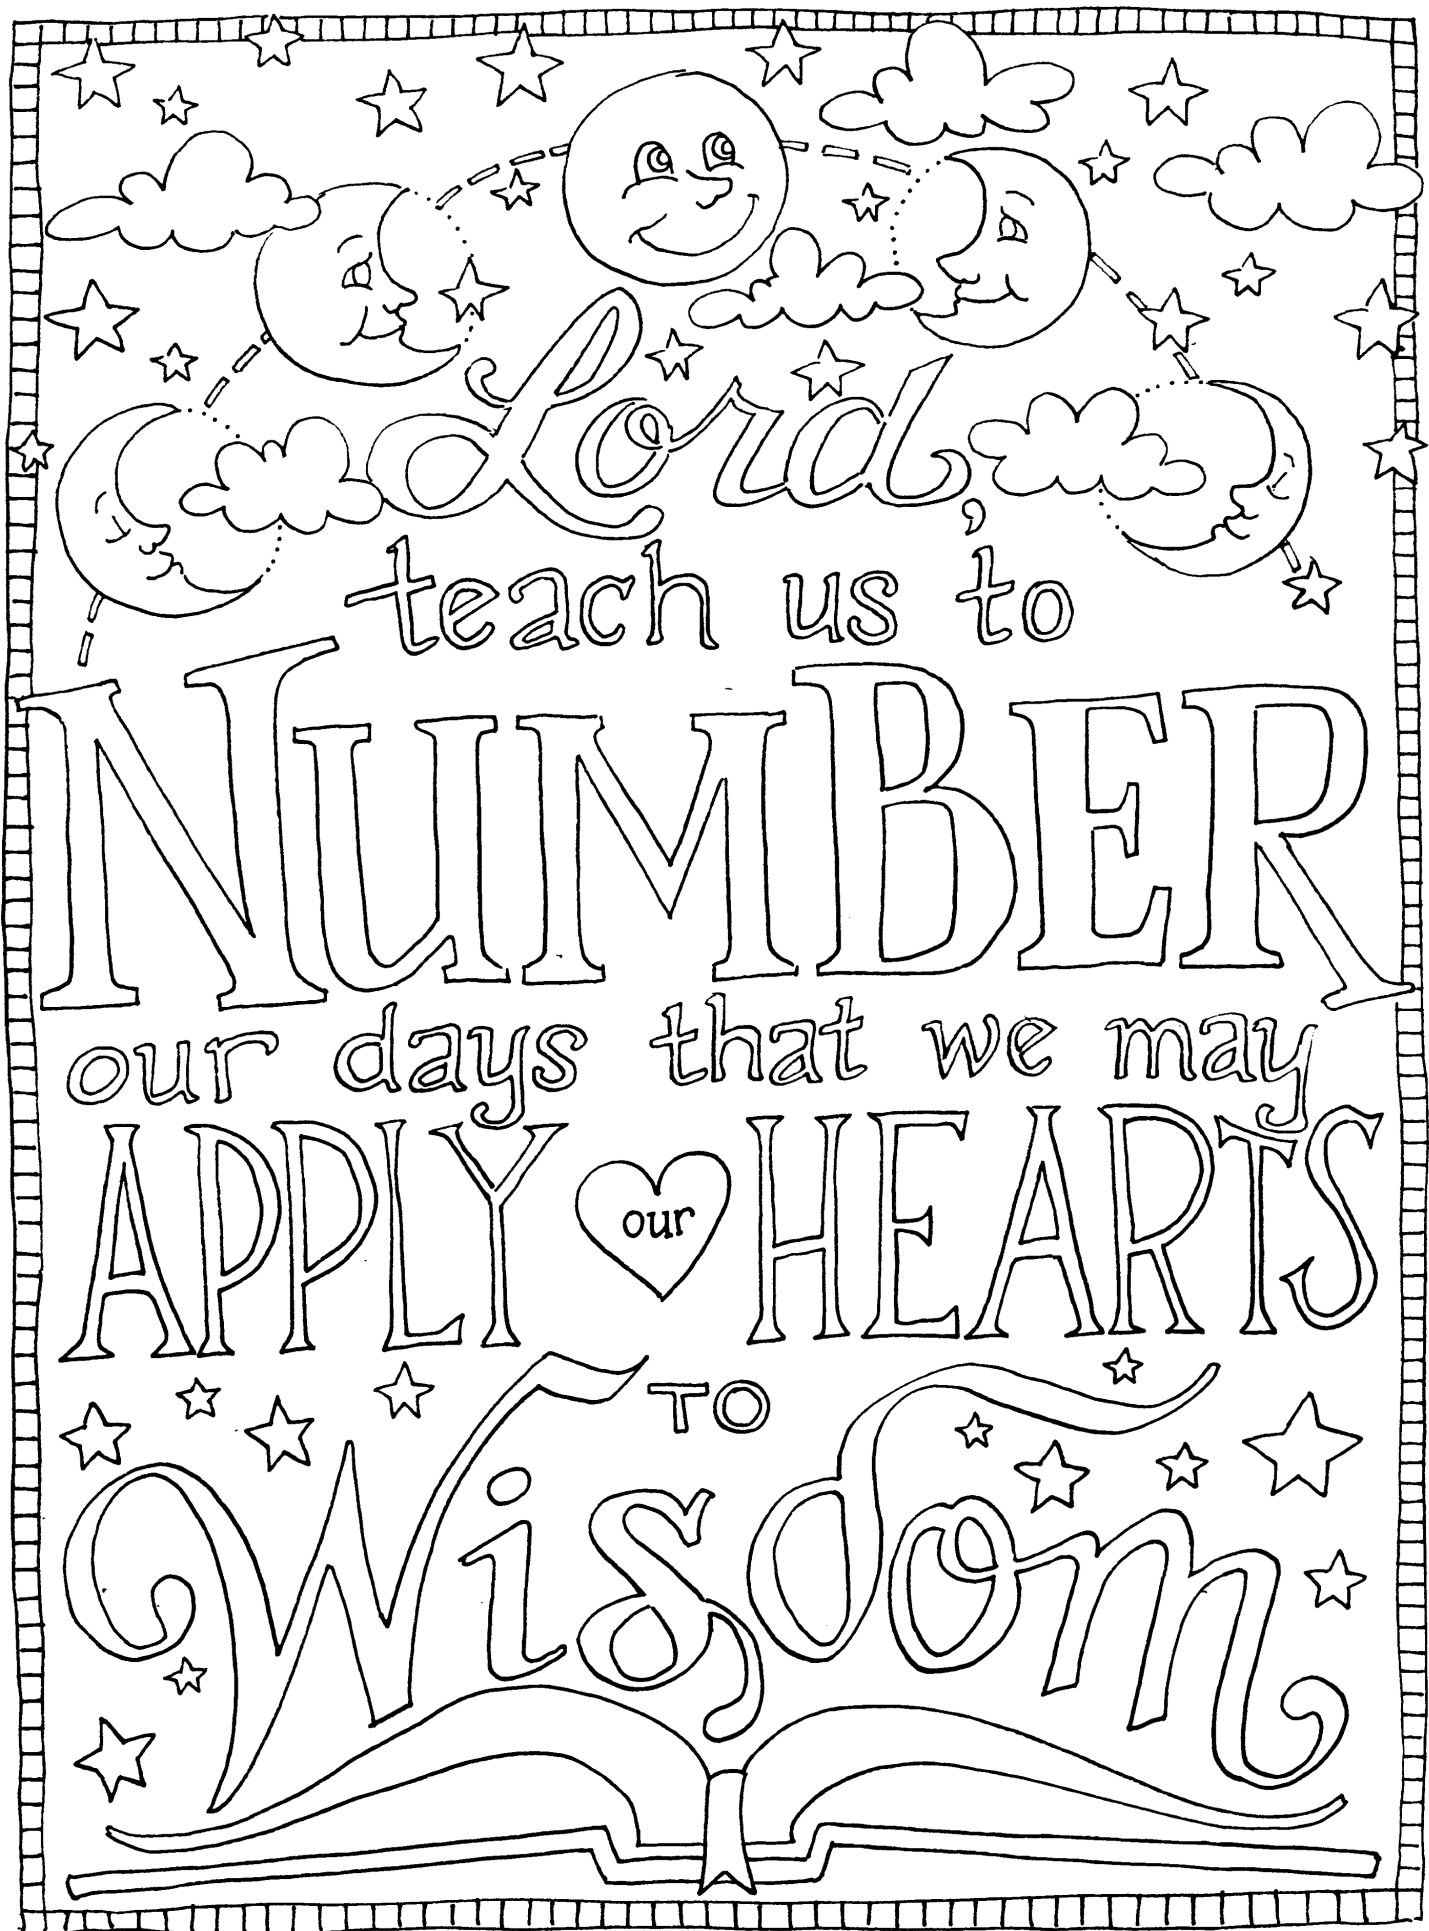 Lord,
teach us to
NUMBER
our days that we may
APPLY our HEARTS
TO
Wisdom